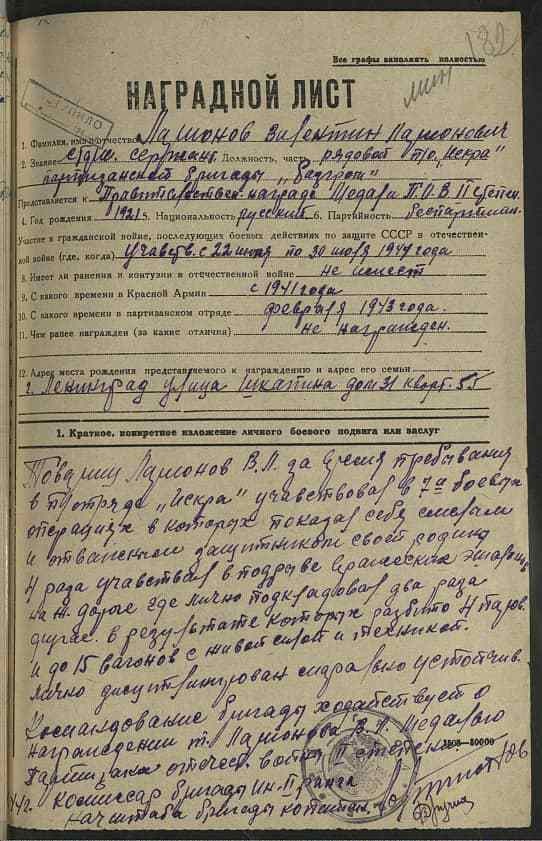 182
Все графы заполнять полностью
НАГРАДНОЙ ЛИСТ
1. Фамилия, имя и отчество Ларионов Валентин Ларионович
2. Звание Старш. сержант. Должность, часть рядовой п/о „Искра"
партизанской бригады
Представляется к Правительствен. награде Медали П.О.В. II степен.
4. Год рождения 1921 5. Национальность русский 6. Партийность беспартийн.
Участие в гражданской войне, последующих боевых действиях по защите СССР в отечествен-
ной войне (где, когда) Учавств. с 22 июня по 30 июля 1941 года
8. Имеет ли ранения и контузии в отечественной войне не имеет
9. С какого времени в Красной Армии с 1941 года
10. С какого времени в партизанском отряде февраля 1943 года.
11. Чем ранее награжден (за какие отличия) не награжден.
12. Адрес места рождения представляемого к награждению и адрес его семьи
г. Ленинград улица Шкапина дом 31 кварт. 55
1. Краткое, конкретное изложение личного боевого подвига или заслуг
Товарищ Ларионов В.Л. за время пребывания
в п/отряде „Искра" учавствовал в 7и боевых
операциях в которых показал себя смелым
и отважным защитником своей родины
4 раза учавствовал в подрыве вражеских эшелонов
на ж. дороге где лично подкладовал два раза
в результате которых разбито 4 паров.
и до 15 вагонов с живой силой и техникой.
лично дисциплинирован морально устойчив.
Командование бригады ходатайствует о
награждении т. Ларионова В.Л. Медалью
Партизана отечеств. войны II степени.
1508—50000
Комиссар бригады
нач штаба бригады капитан